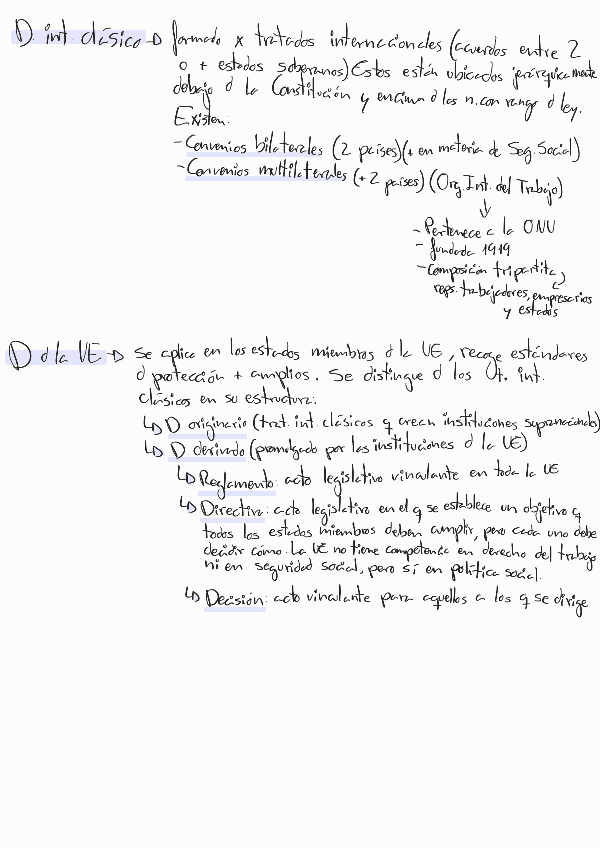 D. int. clásico → formado x tratados internacionales (acuerdos entre 2
o + estados soberanos) Estos están ubicados jerárquicamente
debajo d la Constitución y encima d las n. con rango d ley.
Existen:
- Convenios bilaterales (2 países) (+ en materia de Seg. Social)
- Convenios multilaterales (+ 2 países) (Org. Int. del Trabajo)
↓
- Pertenece a la ONU
- fundada 1919
- Composición tripartita
reps. trabajadores, empresarios
y estados
D d la UE → Se aplica en los estados miembros d la UE, recoge estándares
d protección + amplios. Se distingue d los int.
clásicos en su estructura:
↳ D originario (trat. int. clásicos q crean instituciones supranacionales)
↳ D derivado (promulgado por las instituciones d la UE)
↳ Reglamento: acto legislativo vinculante en toda la UE
↳ Directiva: acto legislativo en el q se establece un objetivo q
todos los estados miembros deben cumplir, pero cada uno debe
decidir cómo. La UE no tiene competencia en derecho del trabajo
ni en seguridad social, pero sí en política social.
↳ Decisión: acto vinculante para aquellos a los q se dirige